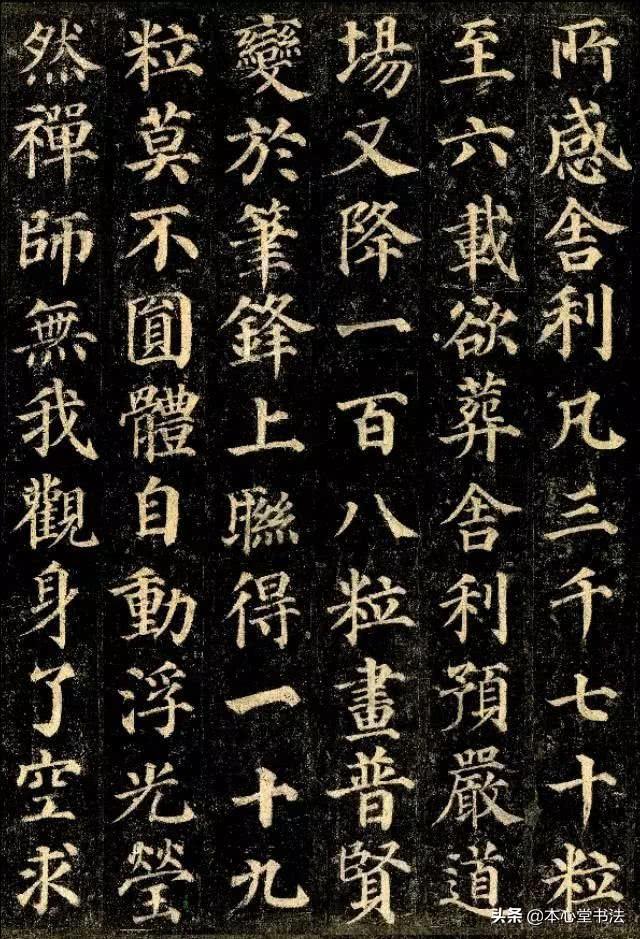 所感舍利凡三千七十粒
至六載欲葬舍利預嚴道
場又降一百八粒畫普賢
變於筆鋒上聯得一十九
粒莫不圓體自動浮光瑩
然禪師無我觀身了空求
头条 @本心堂书法